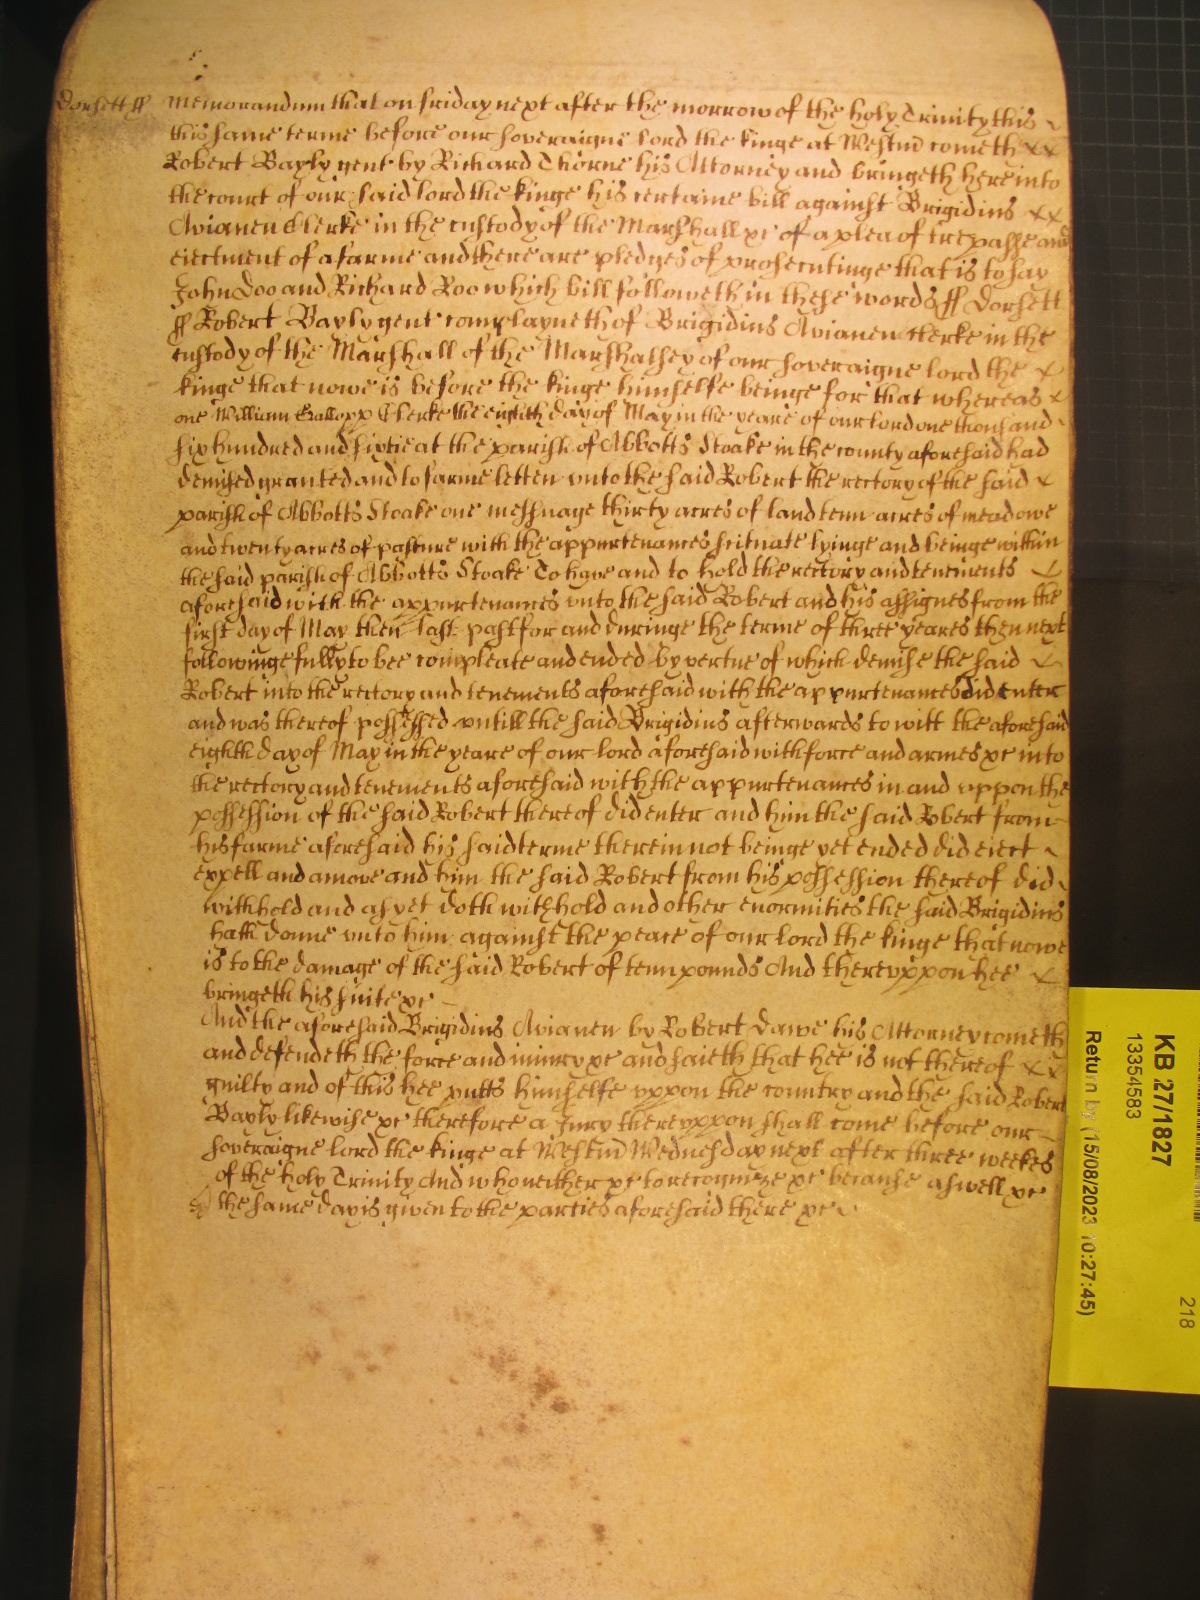 Dorsett ff Memorandum that on friday next after the morrow of the holy Trinity this
this same terme before our soveraigne lord the kinge at Westm cometh xx
Robert Bayly gent by Richard Thorne his Attorney and bringeth here into
the court of our said lord the kinge his certaine bill against Brigidius xx
Avianen Clerke in the custody of the Marshall &c of a plea of trespasse and
eiectment of a farme and there are pledges of prosecutinge that is to say
John Doo and Richard Roo which bill followeth in these words ff Dorsett
ff Robert Bayly gent complayneth of Brigidius Avianen clerke in the
custody of the Marshall of the Marshalsey of our soveraigne lord the x
kinge that nowe is before the kinge himselfe beinge for that whereas x
one William Gallopp Clerke the eighth day of May in the yeare of our lord one thousand
six hundred and sixtie at the parish of Abbotts Stoake in the county aforesaid had
demised granted and to farme letten unto the said Robert the rectory of the said x
parish of Abbotts Stoake one messuage thirty acres of land tenn acres of meadowe
and twenty acres of pasture with the appurtenances scituate lyinge and beinge within
the said parish of Abbotts Stoake To have and to hold the rectory and tenements
aforesaid with the appurtenances unto the said Robert and his assignes from the
first day of May then last past for and duringe the terme of three yeares then next
followinge fully to bee compleate and ended by vertue of which demise the said
Robert into the rectory and tenements aforesaid with the appurtenances did enter
and was thereof possessed untill the said Brigidius afterwards to witt the aforesaid
eighth day of May in the yeare of our lord aforesaid with force and armes &c into
the rectory and tenements aforesaid with the appurtenances in and uppon the
possession of the said Robert thereof did enter and him the said Robert from
his farme aforesaid his said terme therein not beinge yet ended did eiect
expell and amove and him the said Robert from his possession thereof did
withhold and as yet doth withhold and other enormities the said Brigidius
hath donne unto him against the peace of our lord the kinge that nowe
is to the damage of the said Robert of tenn pounds And thereuppon hee
bringeth his suite &c
And the aforesaid Brigidius Avianen by Robert Dawe his Attorney cometh
and defendeth the force and iniury &c and saieth that hee is not thereof xx
guilty and of this hee putts himselfe uppon the country and the said Robert
Bayly likewise &c therefore a Jury thereuppon shall come before our
soveraigne lord the kinge at Westm Wednesday next after three weekes
of the holy Trinity And who neither &c to recognize &c because aswell &c
the same day is given to the parties aforesaid there &c
KB 27/1827
13354583
Return by (15/08/2023 10:27:45)
218